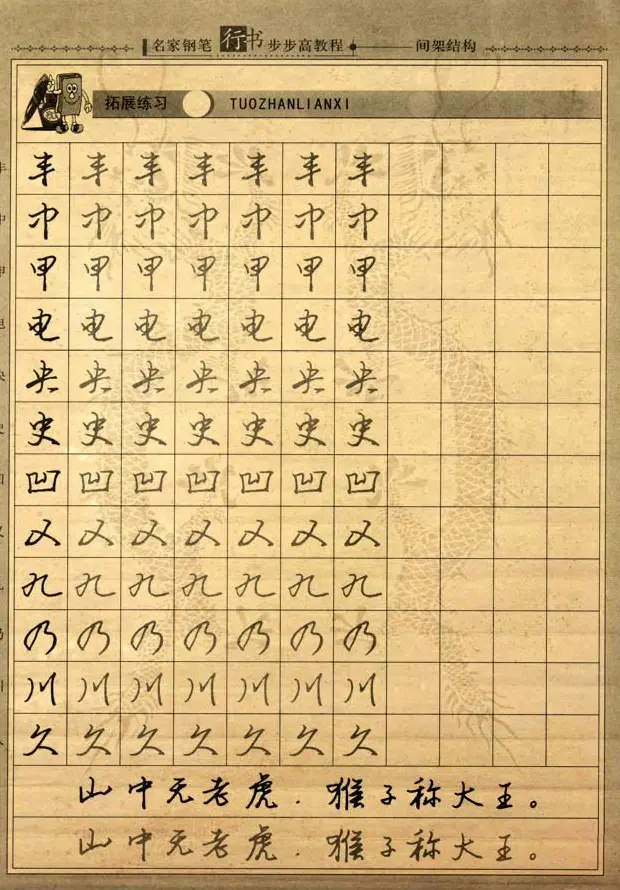 名家钢笔行书步步高教程 间架结构
拓展练习 TUOZHANLIANXI
丰 丰 丰 丰 丰 丰 丰
中 中 中 中 中 中 中
甲 甲 甲 甲 甲 甲 甲
电 电 电 电 电 电 电
央 央 央 央 央 央 央
史 史 史 史 史 史 史
凹 凹 凹 凹 凹 凹 凹
又 又 又 又 又 又 又
九 九 九 九 九 九 九
乃 乃 乃 乃 乃 乃 乃
川 川 川 川 川 川 川
久 久 久 久 久 久 久
山中无老虎.猴子称大王。
山中无老虎.猴子称大王。